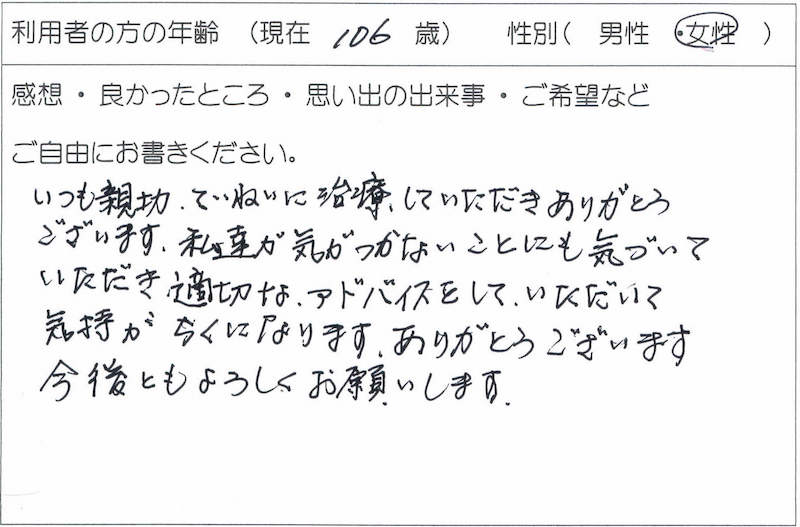 利用者の方の年齢 （現在 106 歳） 性別（ 男性 ・女性 ）
感想・良かったところ・思い出の出来事・ご希望など
ご自由にお書きください。
いつも親切、ていねいに治療、していただきありがとう
ございます、私達が気がつかないことにも気づいて
いただき適切な、アドバイスをして、いただいて
気持が らくになります、ありがとうございます
今後ともよろしくお願いします、